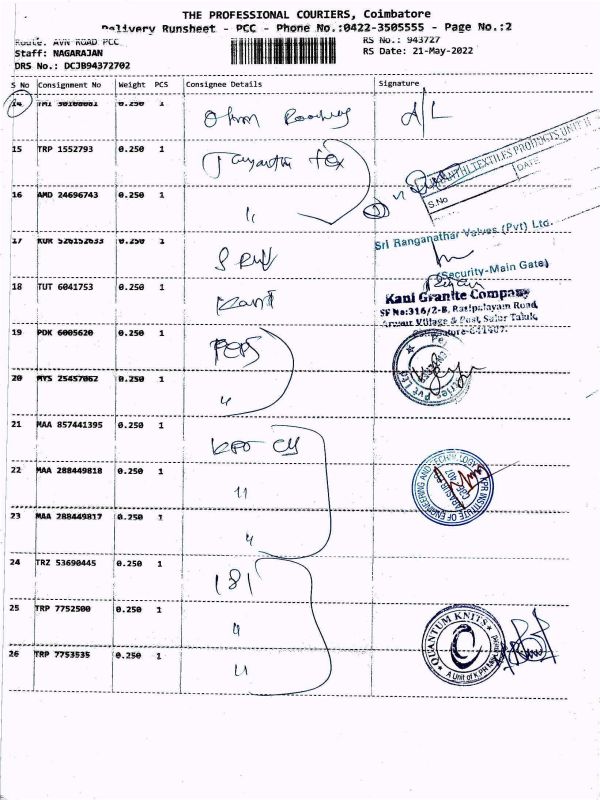 THE PROFESSIONAL COURIERS, Coimbatore
Delivery Runsheet - PCC - Phone No.:0422-3505555 - Page No.:2
Route: AVN ROAD PCC
RS No.: 943727
Staff: NAGARAJAN
RS Date: 21-May-2022
DRS No.: DCJB94372702
S No Consignment No Weight PCS Consignee Details Signature
14 0.250 1
15 TRP 1552793 0.250 1
16 AMD 24696743 0.250 1 "
17 KUR 526152633 0.250 1
18 TUT 6041753 0.250 1
19 PDK 6005620 0.250 1
20 MYS 25457062 0.250 1 "
21 MAA 857441395 0.250 1
22 MAA 288449818 0.250 1 "
23 MAA 288449817 0.250 1 "
24 TRZ 53690445 0.250 1 181
25 TRP 7752500 0.250 1 "
26 TRP 7753535 0.250 1 "
TEXTILES PRODUCTS UNIT II
S.No
DATE
Sri Ranganathar Valves (Pvt) Ltd.
(Security-Main Gate)
Kani Granite Company
SF No:316/2-B, Rasipalayam Road,
Arasur Village & Post, Sulur Taluk,
Coimbatore-641407.
KPR INSTITUTE OF ENGINEERING AND TECHNOLOGY
ARASUR PO
CBE-407
QUANTUM KNITS
A Unit of KPR